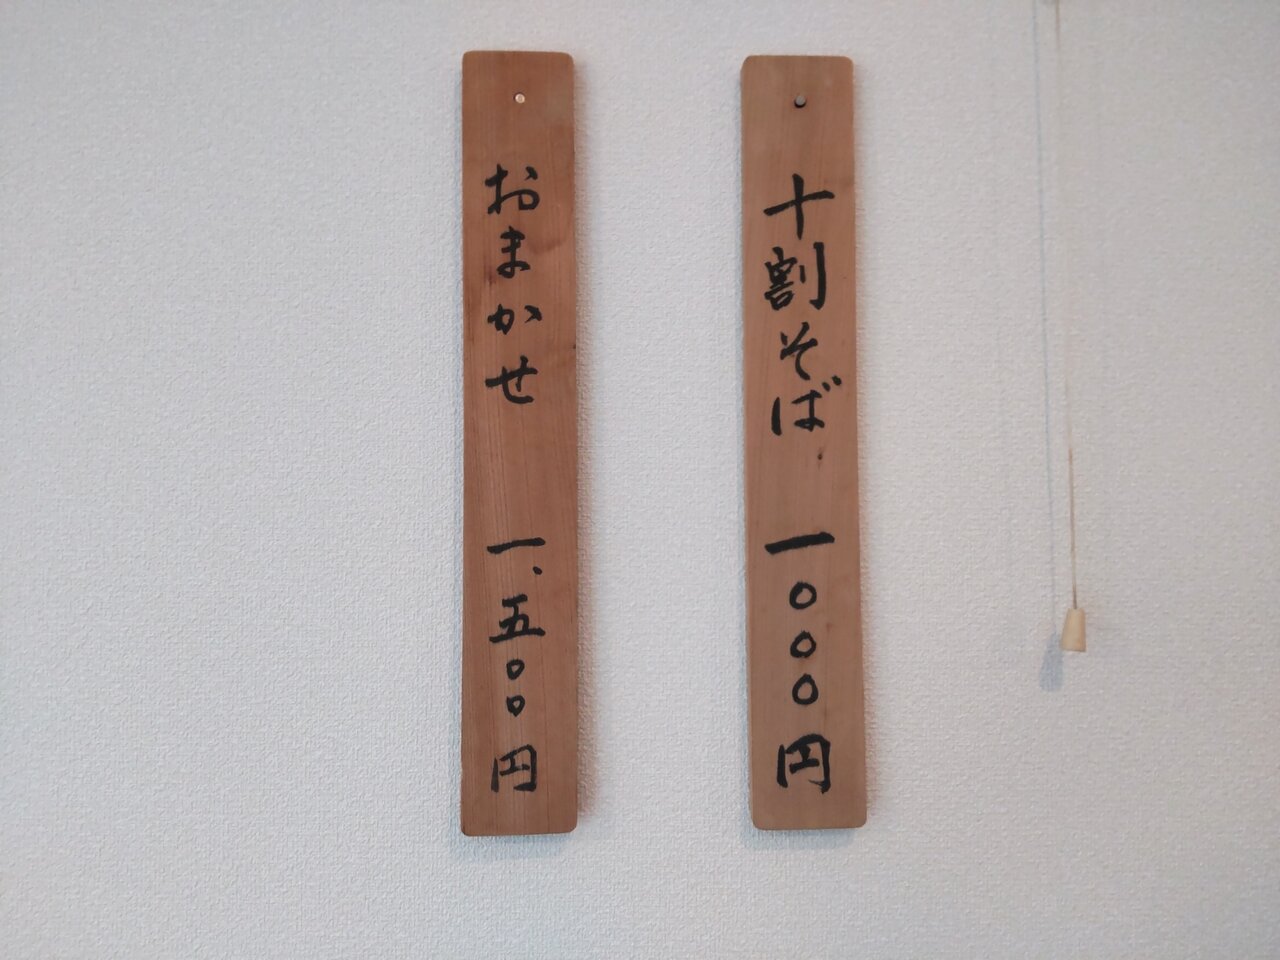 十割そば 一〇〇〇円
おまかせ 一、五〇〇円